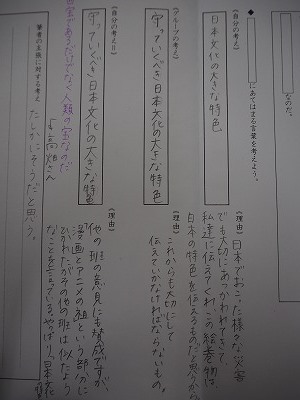 ◆
なのだ。
にあてはまる言葉を考えよう。
〈自分の考え〉
日本文化の大きな特色
〈理由〉
日本でおこった様々な災害
でも大切にあつかわれてきて
私達に伝えてくれ、この絵巻物は、
日本の特色を伝えるものだと思うから
〈グループの考え〉
守っていくべき日本文化の大きな特色
〈理由〉
これからも大切にして
伝えていかなければならないもの。
〈自分の考えⅡ〉
守っていくべき日本文化の大きな特色
〈理由〉
他の班の意見にも賛成ですが、
漫画とアニメの祖という部分に
ひかれたがその他の班は似たよう
なことを言っている。やっぱり、日本文化
宝であるだけでなく、人類の宝なのだ
高畑さん
筆者の主張に対する考え
たしかにそうだと思う。